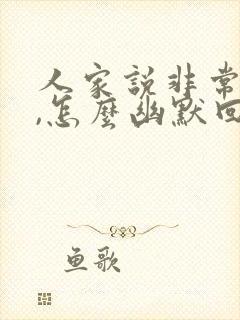 人家説非常
,怎麽幽默回
鱼歌